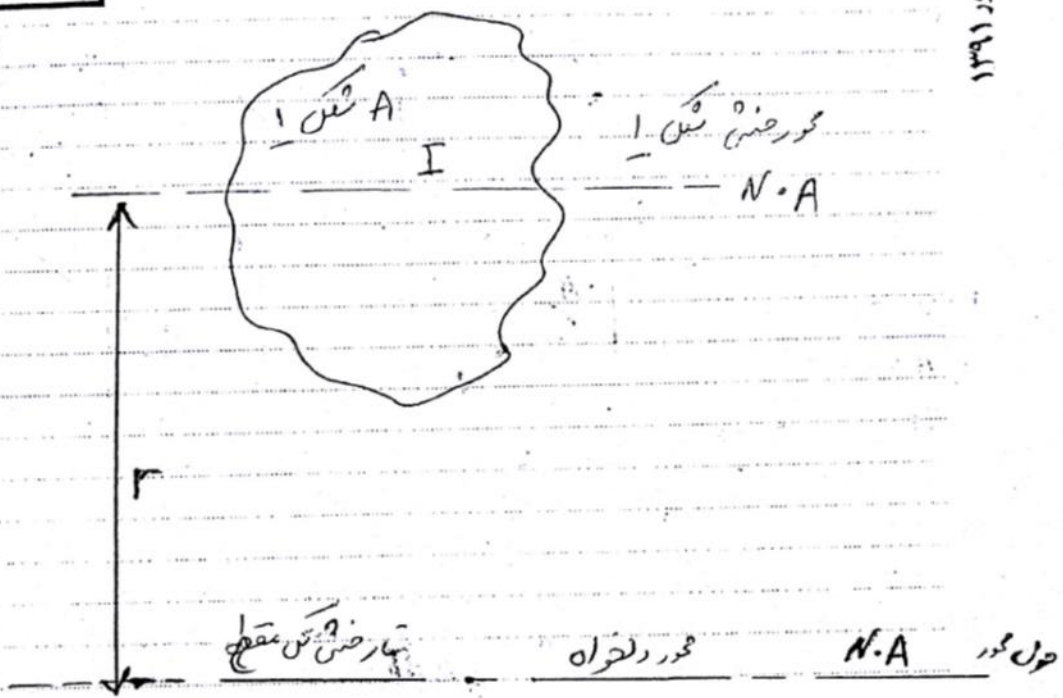 ۱۳۹۱
شکل ۱ A
محور خنثی شکل ۱
I
N.A
r
تار خنثی کل مقطع
محور دلخواه
N.A
حول محور